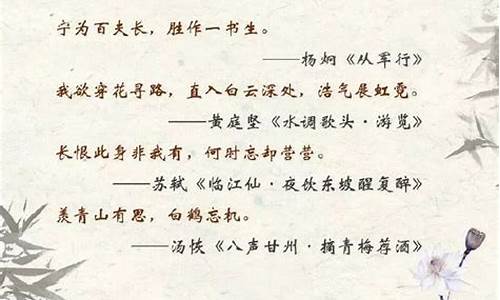 宁为百夫长，胜作一书生。
——杨炯《从军行》
我欲穿花寻路，直入白云深处，浩气展虹霓。
——黄庭坚《水调歌头·游览》
长恨此身非我有，何时忘却营营。
——苏轼《临江仙·夜饮东坡醒复醉》
羡青山有思，白鹤忘机。
——汤恢《八声甘州·摘青梅荐酒》